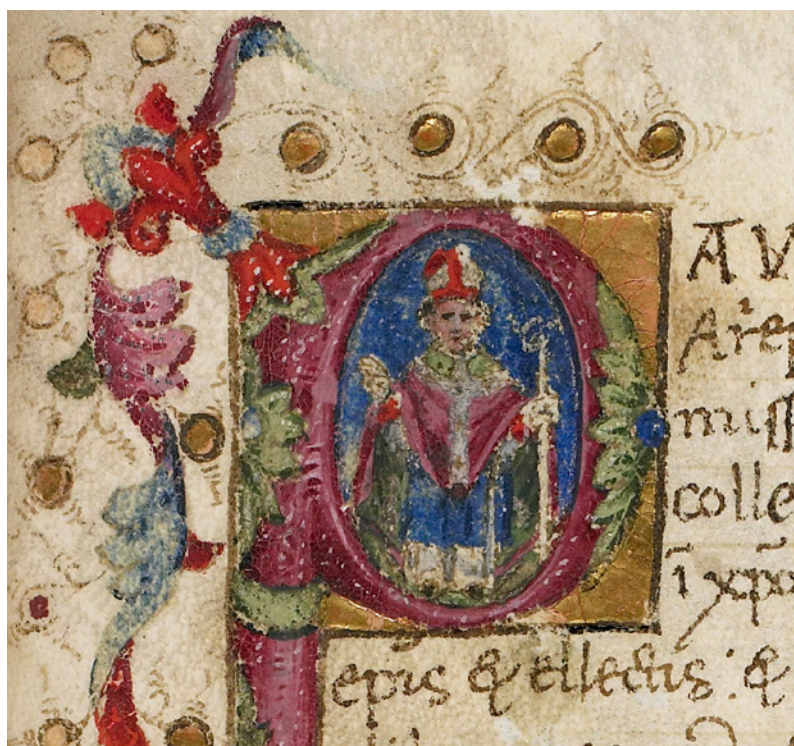 PAV
Arep
miss
colle
ī xp̄o
epis & ellectis : &